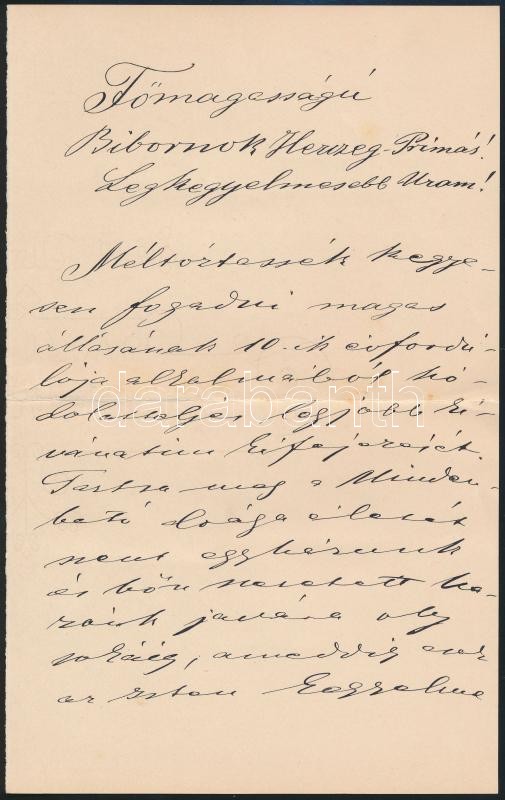 Főmagasságú
Bibornok Herczeg-Primás!
Legkegyelmesebb Uram!
Méltóztassék kegye-
sen fogadni magas
állásának 10-ik évfordu-
lója alkalmából hó-
dolatteljes legjobb ki-
vánatim kifejezését.
Tartsa meg a Minden-
ható drága életét
szent egyházunk
és hőn szeretett ha-
zánk javára oly
sokáig, ameddig csak
az Isten kegyelme
darabanth